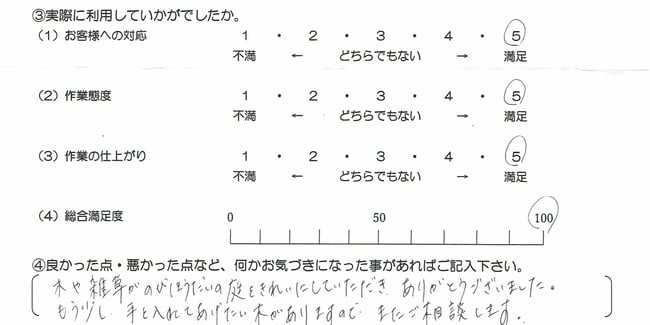 ③実際に利用していかがでしたか。
(1) お客様への対応 1 ・ 2 ・ 3 ・ 4 ・ 5
不満 ← どちらでもない → 満足
(2) 作業態度 1 ・ 2 ・ 3 ・ 4 ・ 5
不満 ← どちらでもない → 満足
(3) 作業の仕上がり 1 ・ 2 ・ 3 ・ 4 ・ 5
不満 ← どちらでもない → 満足
(4) 総合満足度 0 50 100
④良かった点・悪かった点など、何かお気づきになった事があればご記入下さい。
木や雑草がのびほうだいの庭をきれいにしていただき ありがとうございました。
もう少し 手を入れてあげたい木がありますので またご相談します。